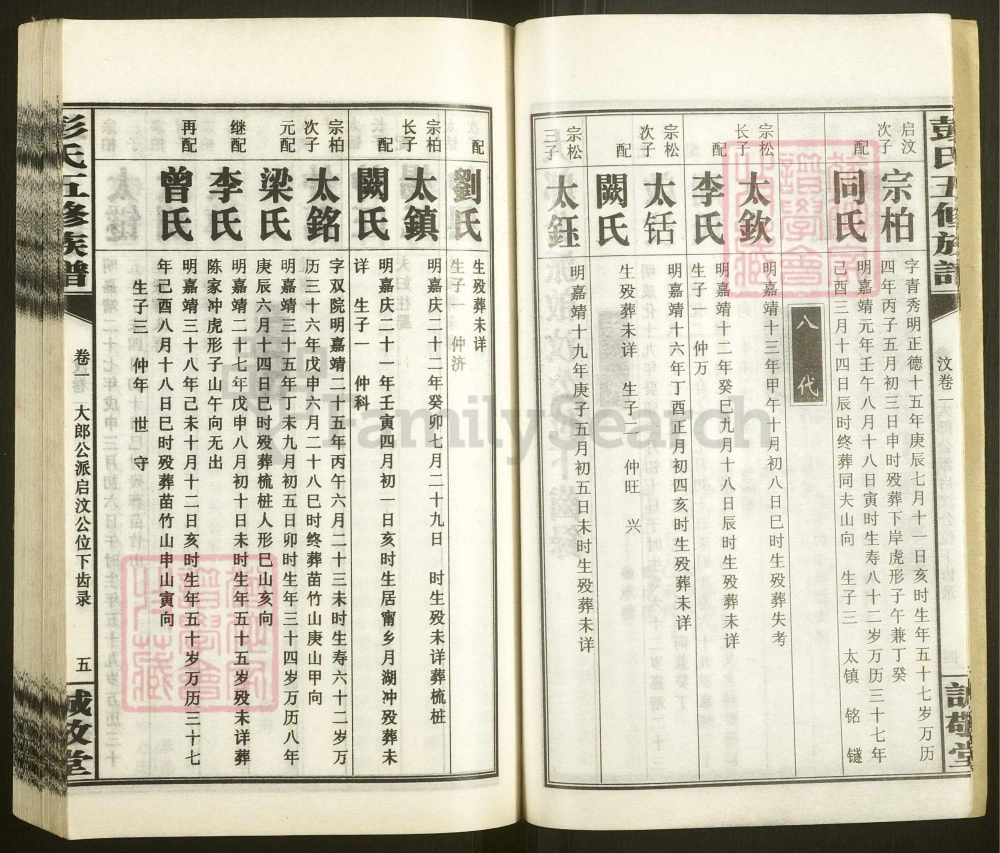 彭氏五修族譜
汶卷一
誠敬堂
启汶次子
宗柏
字青秀明正德十五年庚辰七月十一日亥时生年五十七岁万历
四年丙子五月初三日申时殁葬下岸虎形子午兼丁癸
配
同氏
明嘉靖元年壬午八月十八日寅时生寿八十二岁万历三十七年
己酉三月十四日辰时终葬同夫山向 生子三 太镇 铭 鐩
八代
宗松长子
太欽
明嘉靖十三年甲午十月初八日巳时生殁葬失考
配
李氏
明嘉靖十二年癸巳九月十八日辰时生殁葬未详
生子一 仲万
宗松次子
太铦
明嘉靖十六年丁酉正月初四亥时生殁葬未详
配
闕氏
生殁葬未详 生子二 仲旺 兴
宗松三子
太鈺
明嘉靖十九年庚子五月初五日未时生殁葬未详
配
劉氏
生殁葬未详
生子一 仲济
宗柏长子
太鎮
明嘉庆二十二年癸卯七月二十九日 时生殁未详葬梳桩
配
闕氏
明嘉庆二十一年壬寅四月初一日亥时生居甯乡月湖冲殁葬未
详 生子一 仲科
宗柏次子
太銘
字双院明嘉靖二十五年丙午六月二十三未时生寿六十二岁万
历三十六年戊申六月二十八巳时终葬苗竹山庚山甲向
元配
梁氏
明嘉靖三十五年丁未九月初五日卯时生年三十四岁万历八年
庚辰六月十四日巳时殁葬梳桩人形巳山亥向
继配
李氏
明嘉靖二十七年戊申八月初十日未时生年五十五岁殁未详葬
陈家冲虎形子山午向无出
再配
曾氏
明嘉靖三十八年己未十月十二日亥时生年五十岁万历三十七
年己酉八月十八日巳时殁葬苗竹山申山寅向
生子三 仲年 世 守
彭氏五修族譜
卷一
大郎公派启汶公位下齿录
五
誠敬堂
FamilySearch